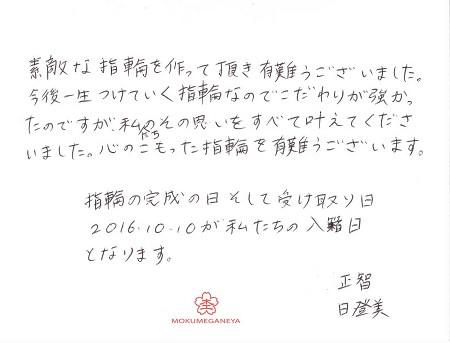 素敵な指輪を作って頂き有難うございました。
今後一生つけていく指輪なのでこだわりが強かっ
たのですが私たちのその思いをすべて叶えてくださ
いました。心のこもった指輪を有難うございます。
指輪の完成の日そして受け取り日
2016.10.10が私たちの入籍日
となります。
正智
日登美
MOKUMEGANEYA